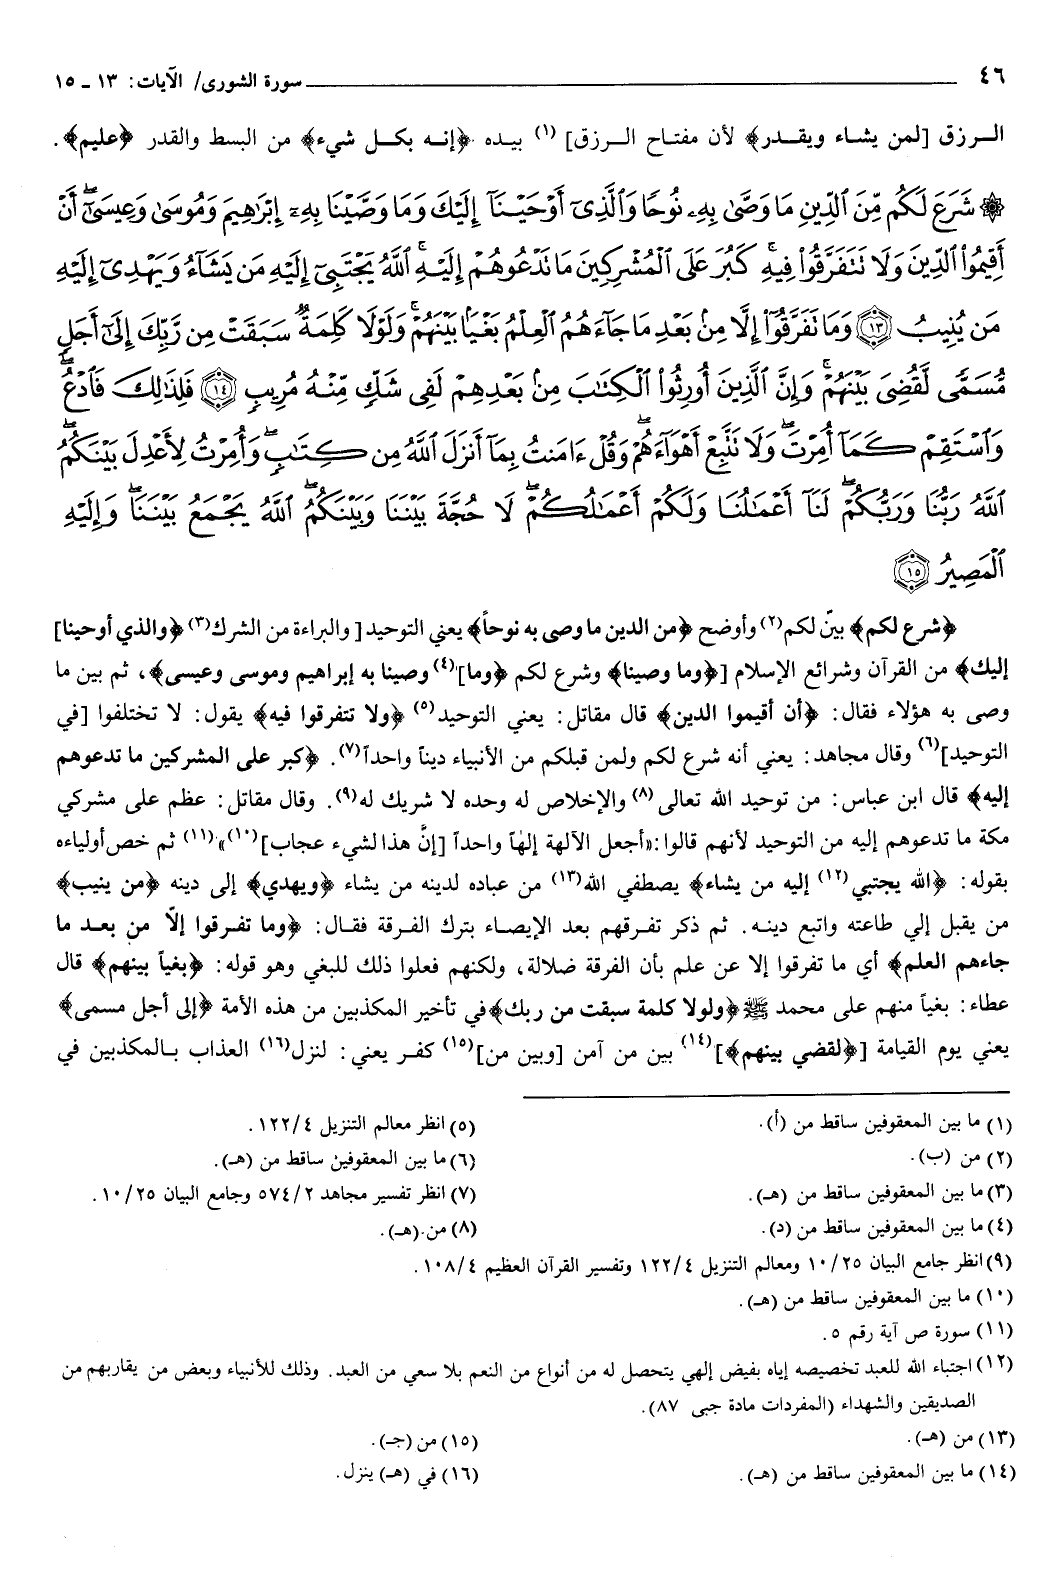 ٤٦ سورة الشورى/ الآيات: ١٣ ـ ١٥
الـرزق [لمن يشاء ويقـدر﴾ لأن مفتاح الـرزق] (١) بيـده ﴿إنـه بكـل شيء﴾ من البسط والقدر ﴿عليم﴾.
۞ شَرَعَ لَكُم مِّنَ ٱلدِّينِ مَا وَصَّىٰ بِهِۦ نُوحًا وَٱلَّذِىٓ أَوْحَيْنَآ إِلَيْكَ وَمَا وَصَّيْنَا بِهِۦٓ إِبْرَٰهِيمَ وَمُوسَىٰ وَعِيسَىٰٓ ۖ أَنْ
أَقِيمُوا۟ ٱلدِّينَ وَلَا تَتَفَرَّقُوا۟ فِيهِ ۚ كَبُرَ عَلَى ٱلْمُشْرِكِينَ مَا تَدْعُوهُمْ إِلَيْهِ ۚ ٱللَّهُ يَجْتَبِىٓ إِلَيْهِ مَن يَشَآءُ وَيَهْدِىٓ إِلَيْهِ
مَن يُنِيبُ ﴿١٣﴾ وَمَا تَفَرَّقُوٓا۟ إِلَّا مِنۢ بَعْدِ مَا جَآءَهُمُ ٱلْعِلْمُ بَغْيًۢا بَيْنَهُمْ ۚ وَلَوْلَا كَلِمَةٌ سَبَقَتْ مِن رَّبِّكَ إِلَىٰٓ أَجَلٍ
مُّسَمًّى لَّقُضِىَ بَيْنَهُمْ ۚ وَإِنَّ ٱلَّذِينَ أُورِثُوا۟ ٱلْكِتَٰبَ مِنۢ بَعْدِهِمْ لَفِى شَكٍّ مِّنْهُ مُرِيبٍ ﴿١٤﴾ فَلِذَٰلِكَ فَٱدْعُ ۖ
وَٱسْتَقِمْ كَمَآ أُمِرْتَ ۖ وَلَا تَتَّبِعْ أَهْوَآءَهُمْ ۖ وَقُلْ ءَامَنتُ بِمَآ أَنزَلَ ٱللَّهُ مِن كِتَٰبٍ ۖ وَأُمِرْتُ لِأَعْدِلَ بَيْنَكُمُ ۖ
ٱللَّهُ رَبُّنَا وَرَبُّكُمْ ۖ لَنَآ أَعْمَٰلُنَا وَلَكُمْ أَعْمَٰلُكُمْ ۖ لَا حُجَّةَ بَيْنَنَا وَبَيْنَكُمُ ۖ ٱللَّهُ يَجْمَعُ بَيْنَنَا ۖ وَإِلَيْهِ
ٱلْمَصِيرُ ﴿١٥﴾
﴿شرع لكم﴾ بيّن لكم(٢) وأوضح ﴿من الدين ما وصى به نوحاً﴾ يعني التوحيد [والبراءة من الشرك(٣) ﴿والذي أوحينا]
إليك﴾ من القرآن وشرائع الإسلام [﴿وما وصينا﴾ وشرع لكم ﴿وما](٤) وصينا به إبراهيم وموسى وعيسى﴾، ثم بين ما
وصى به هؤلاء فقال: ﴿أن أقيموا الدين﴾ قال مقاتل: يعني التوحيد(٥) ﴿ولا تتفرقوا فيه﴾ يقول: لا تختلفوا [في
التوحيد](٦) وقال مجاهد: يعني أنه شرع لكم ولمن قبلكم من الأنبياء ديناً واحداً(٧). ﴿كبر على المشركين ما تدعوهم
إليه﴾ قال ابن عباس: من توحيد الله تعالى(٨) والإخلاص له وحده لا شريك له(٩). وقال مقاتل: عظم على مشركي
مكة ما تدعوهم إليه من التوحيد لأنهم قالوا:«أجعل الآلهة إلهاً واحداً [إنَّ هذا لشيء عجاب](١٠)»(١١) ثم خص أولياءه
بقوله: ﴿الله يجتبي(١٢) إليه من يشاء﴾ يصطفي الله(١٣) من عباده لدينه من يشاء ﴿ويهدي﴾ إلى دينه ﴿من ينيب﴾
من يقبل إلي طاعته واتبع دينـه. ثم ذكر تفـرقهم بعد الإيصـاء بترك الفـرقة فقـال: ﴿وما تفـرقوا إلاّ من بعـد ما
جاءهم العلم﴾ أي ما تفرقوا إلا عن علم بأن الفرقة ضلالة، ولكنهم فعلوا ذلك للبغي وهو قوله: ﴿بغياً بينهم﴾ قال
عطاء: بغياً منهم على محمد ﷺ ﴿ولولا كلمة سبقت من ربك﴾ في تأخير المكذبين من هذه الأمة ﴿إلى أجل مسمى﴾
يعني يوم القيامة [﴿لقضي بينهم﴾](١٤) بين من آمن [وبين من](١٥) كفـر يعني: لنزل(١٦) العذاب بـالمكذبين في
(١) ما بين المعقوفين ساقط من (أ).
(٢) من (ب).
(٣) ما بين المعقوفين ساقط من (هـ).
(٤) ما بين المعقوفين ساقط من (د).
(٥) انظر معالم التنزيل ١٢٢/٤.
(٦) ما بين المعقوفين ساقط من (هـ).
(٧) انظر تفسير مجاهد ٥٧٤/٢ وجامع البيان ١٠/٢٥.
(٨) من (هـ).
(٩) انظر جامع البيان ١٠/٢٥ ومعالم التنزيل ١٢٢/٤ وتفسير القرآن العظيم ١٠٨/٤.
(١٠) ما بين المعقوفين ساقط من (هـ).
(١١) سورة ص آية رقم ٥.
(١٢) اجتباء الله للعبد تخصيصه إياه بفيض إلهي يتحصل له من أنواع من النعم بلا سعي من العبد. وذلك للأنبياء وبعض من يقاربهم من
الصديقين والشهداء (المفردات مادة جبى ٨٧).
(١٣) من (هـ).
(١٤) ما بين المعقوفين ساقط من (هـ).
(١٥) من (جـ).
(١٦) في (هـ) ينزل.